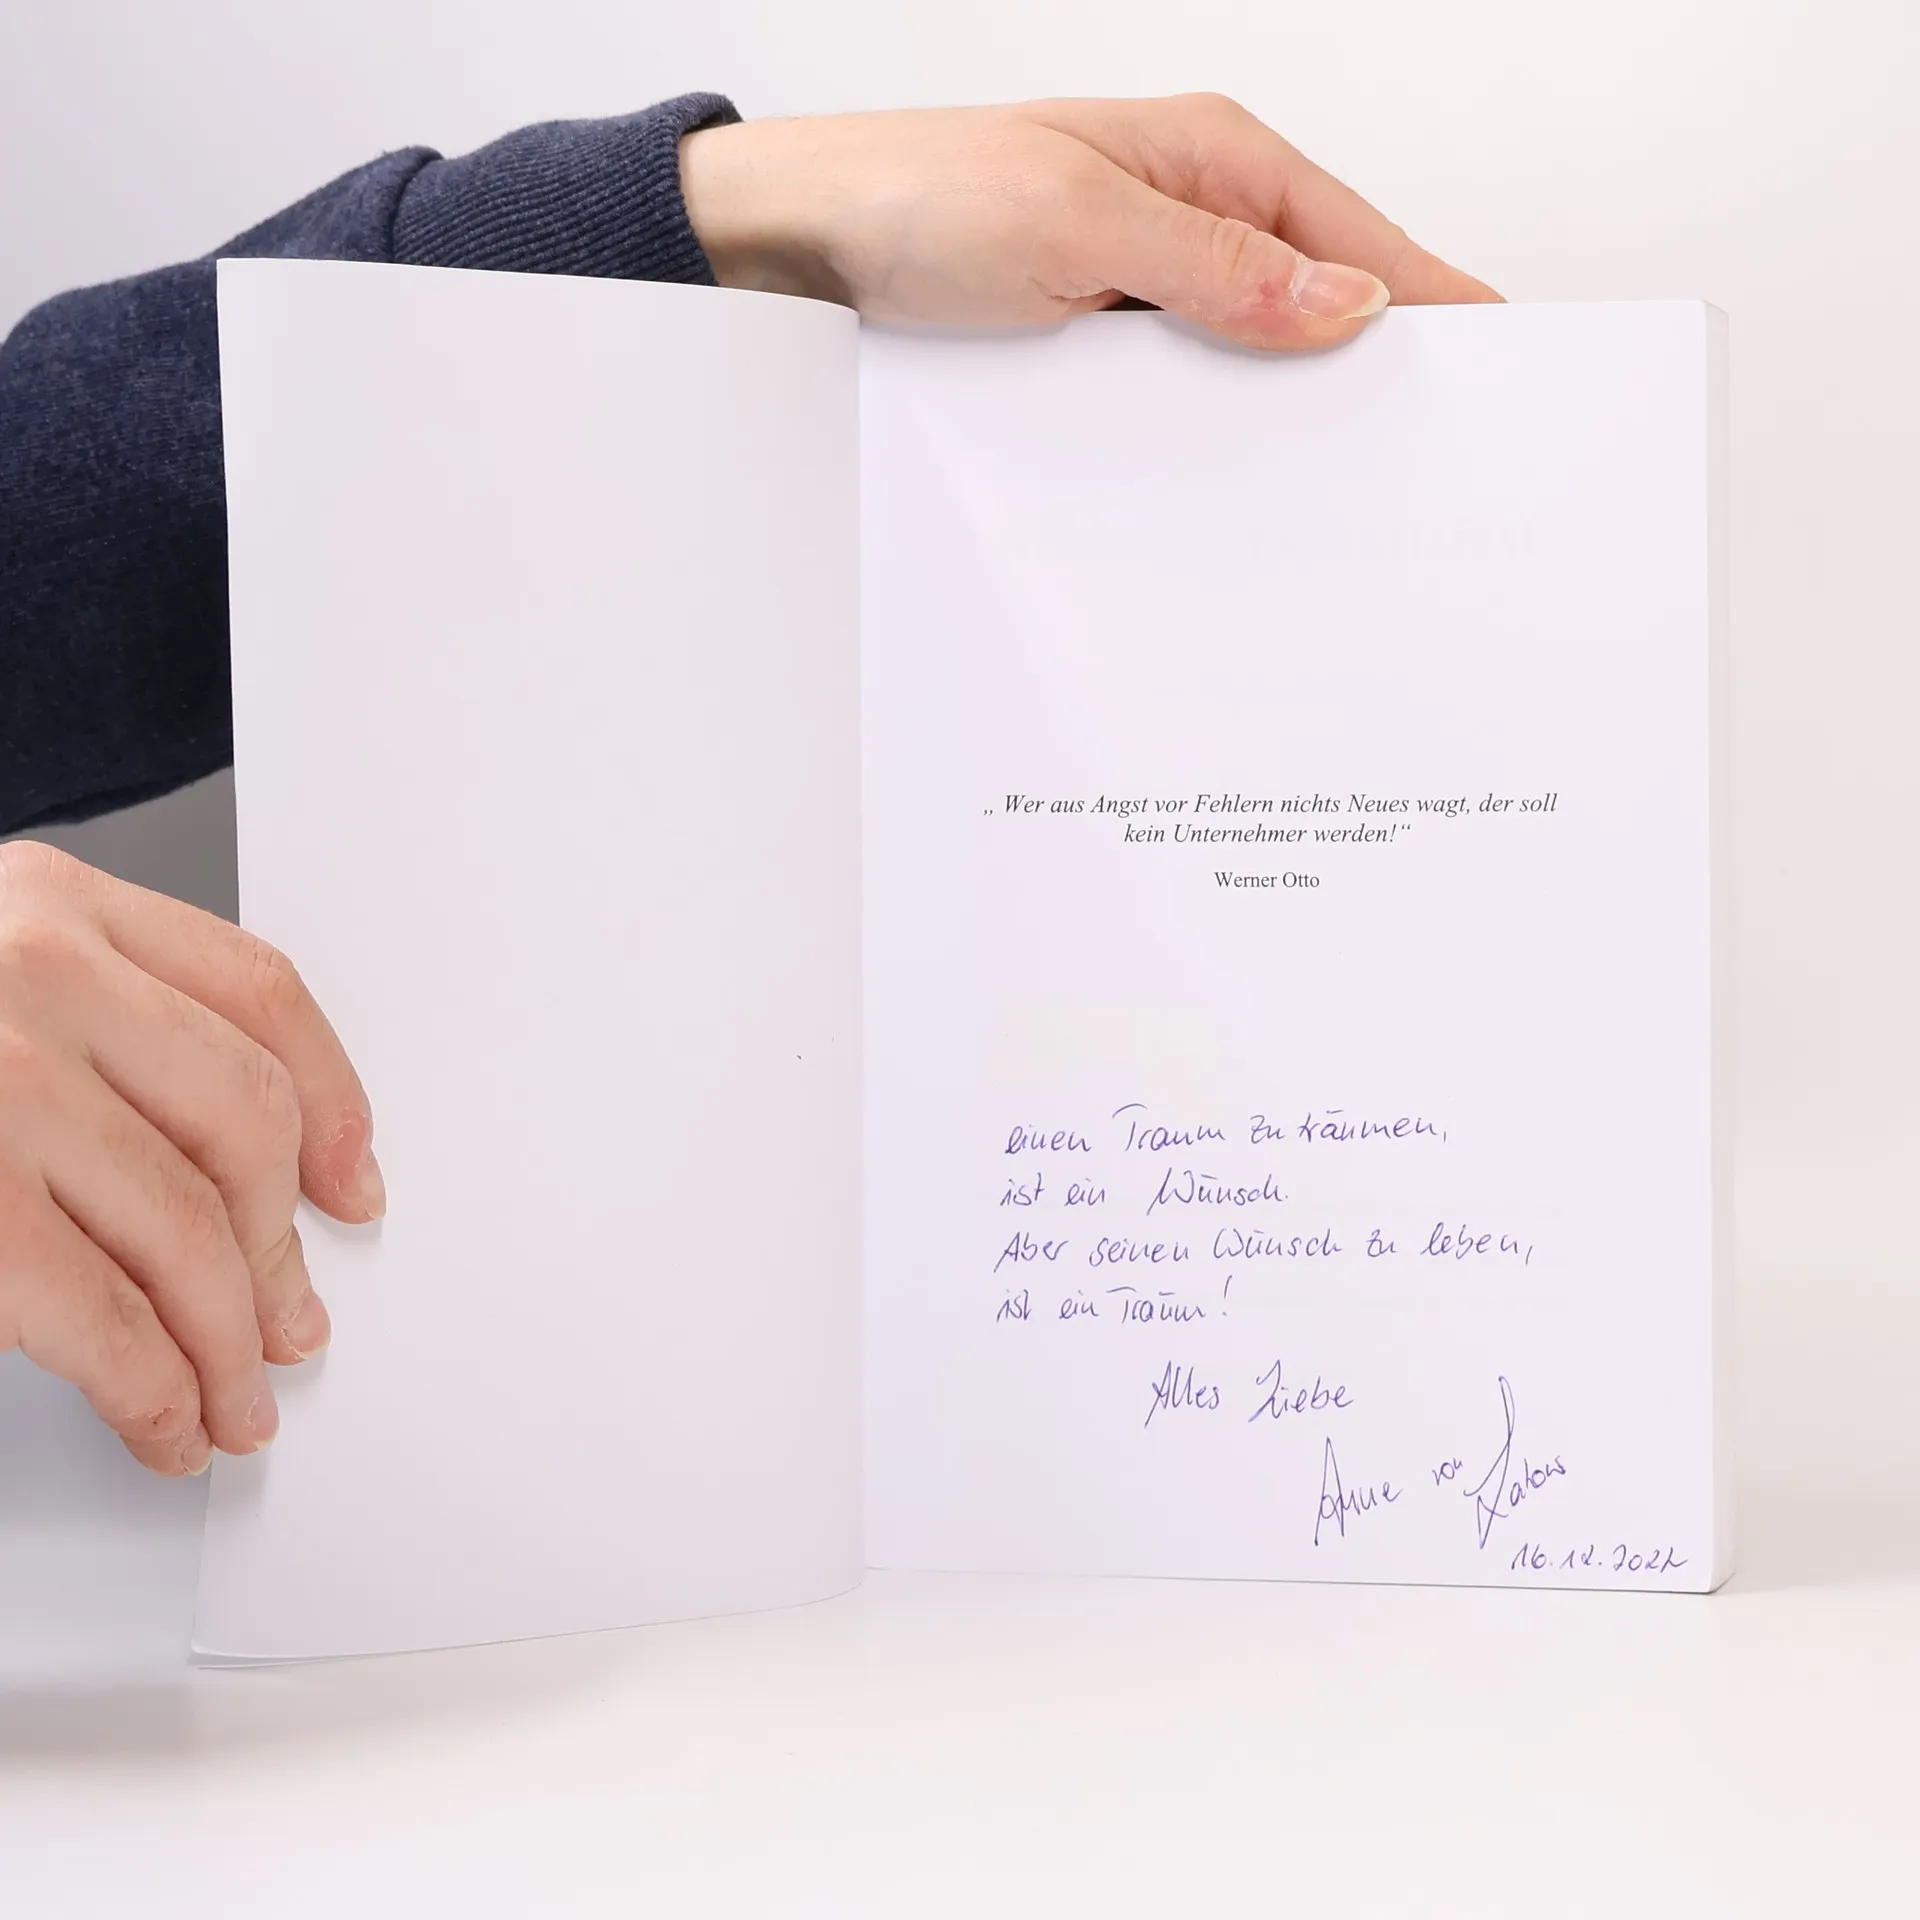 „ Wer aus Angst vor Fehlern nichts Neues wagt, der soll
kein Unternehmer werden!“
Werner Otto
einen Traum zu träumen,
ist ein Wunsch.
Aber seinen Wunsch zu leben,
ist ein Traum!
Alles Liebe
Anne von
16.12.2022